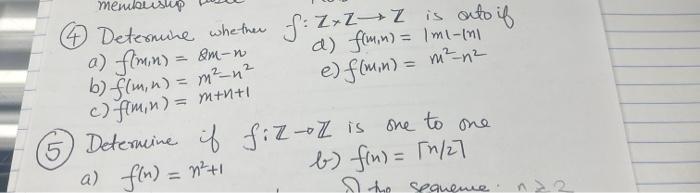 membership
④ Determine whether f: Z×Z→Z is onto if
a) f(m,n) = 2m-n
d) f(m,n) = |m|-|n|
b) f(m,n) = m²-n²
e) f(m,n) = m²-n²
c) f(m,n) = m+n+1
⑤ Determine if f: Z→Z is one to one
a) f(n) = n²+1
b) f(n) = ⌈n/2⌉
the sequence. n≥2